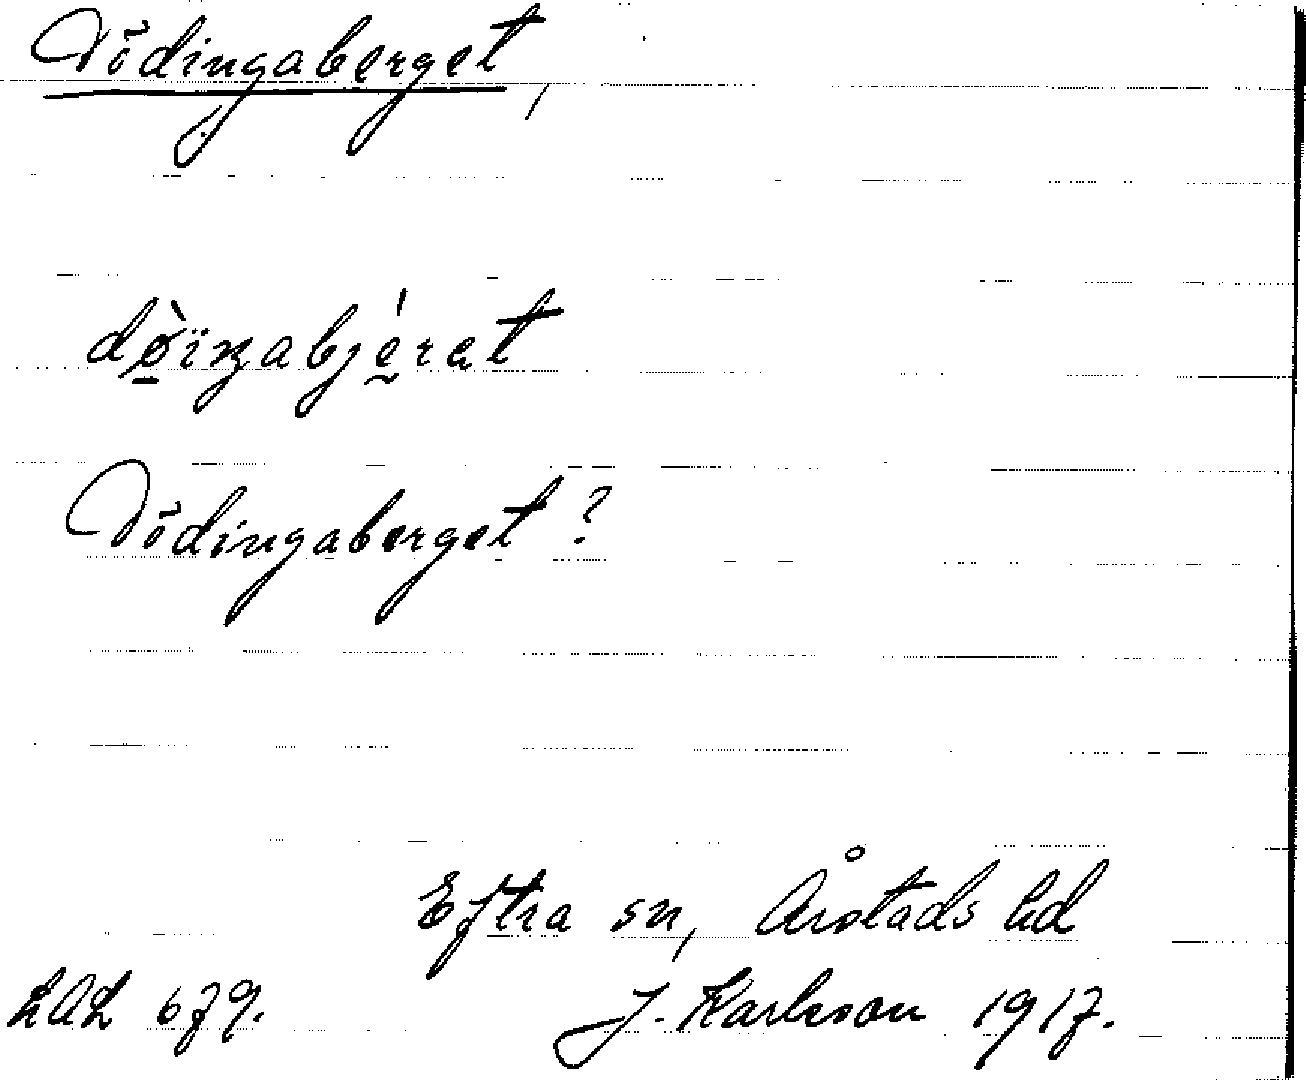 Dödingaberget,
dø̠̀ïŋabjé̠rat
Dödingaberget?
Eftra sn, Årstads hd
LAL 679. J. Karlsson 1917.